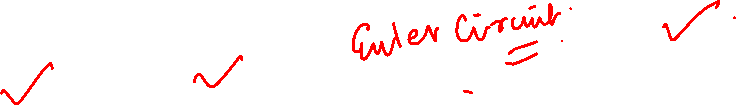 Euler Circuit.